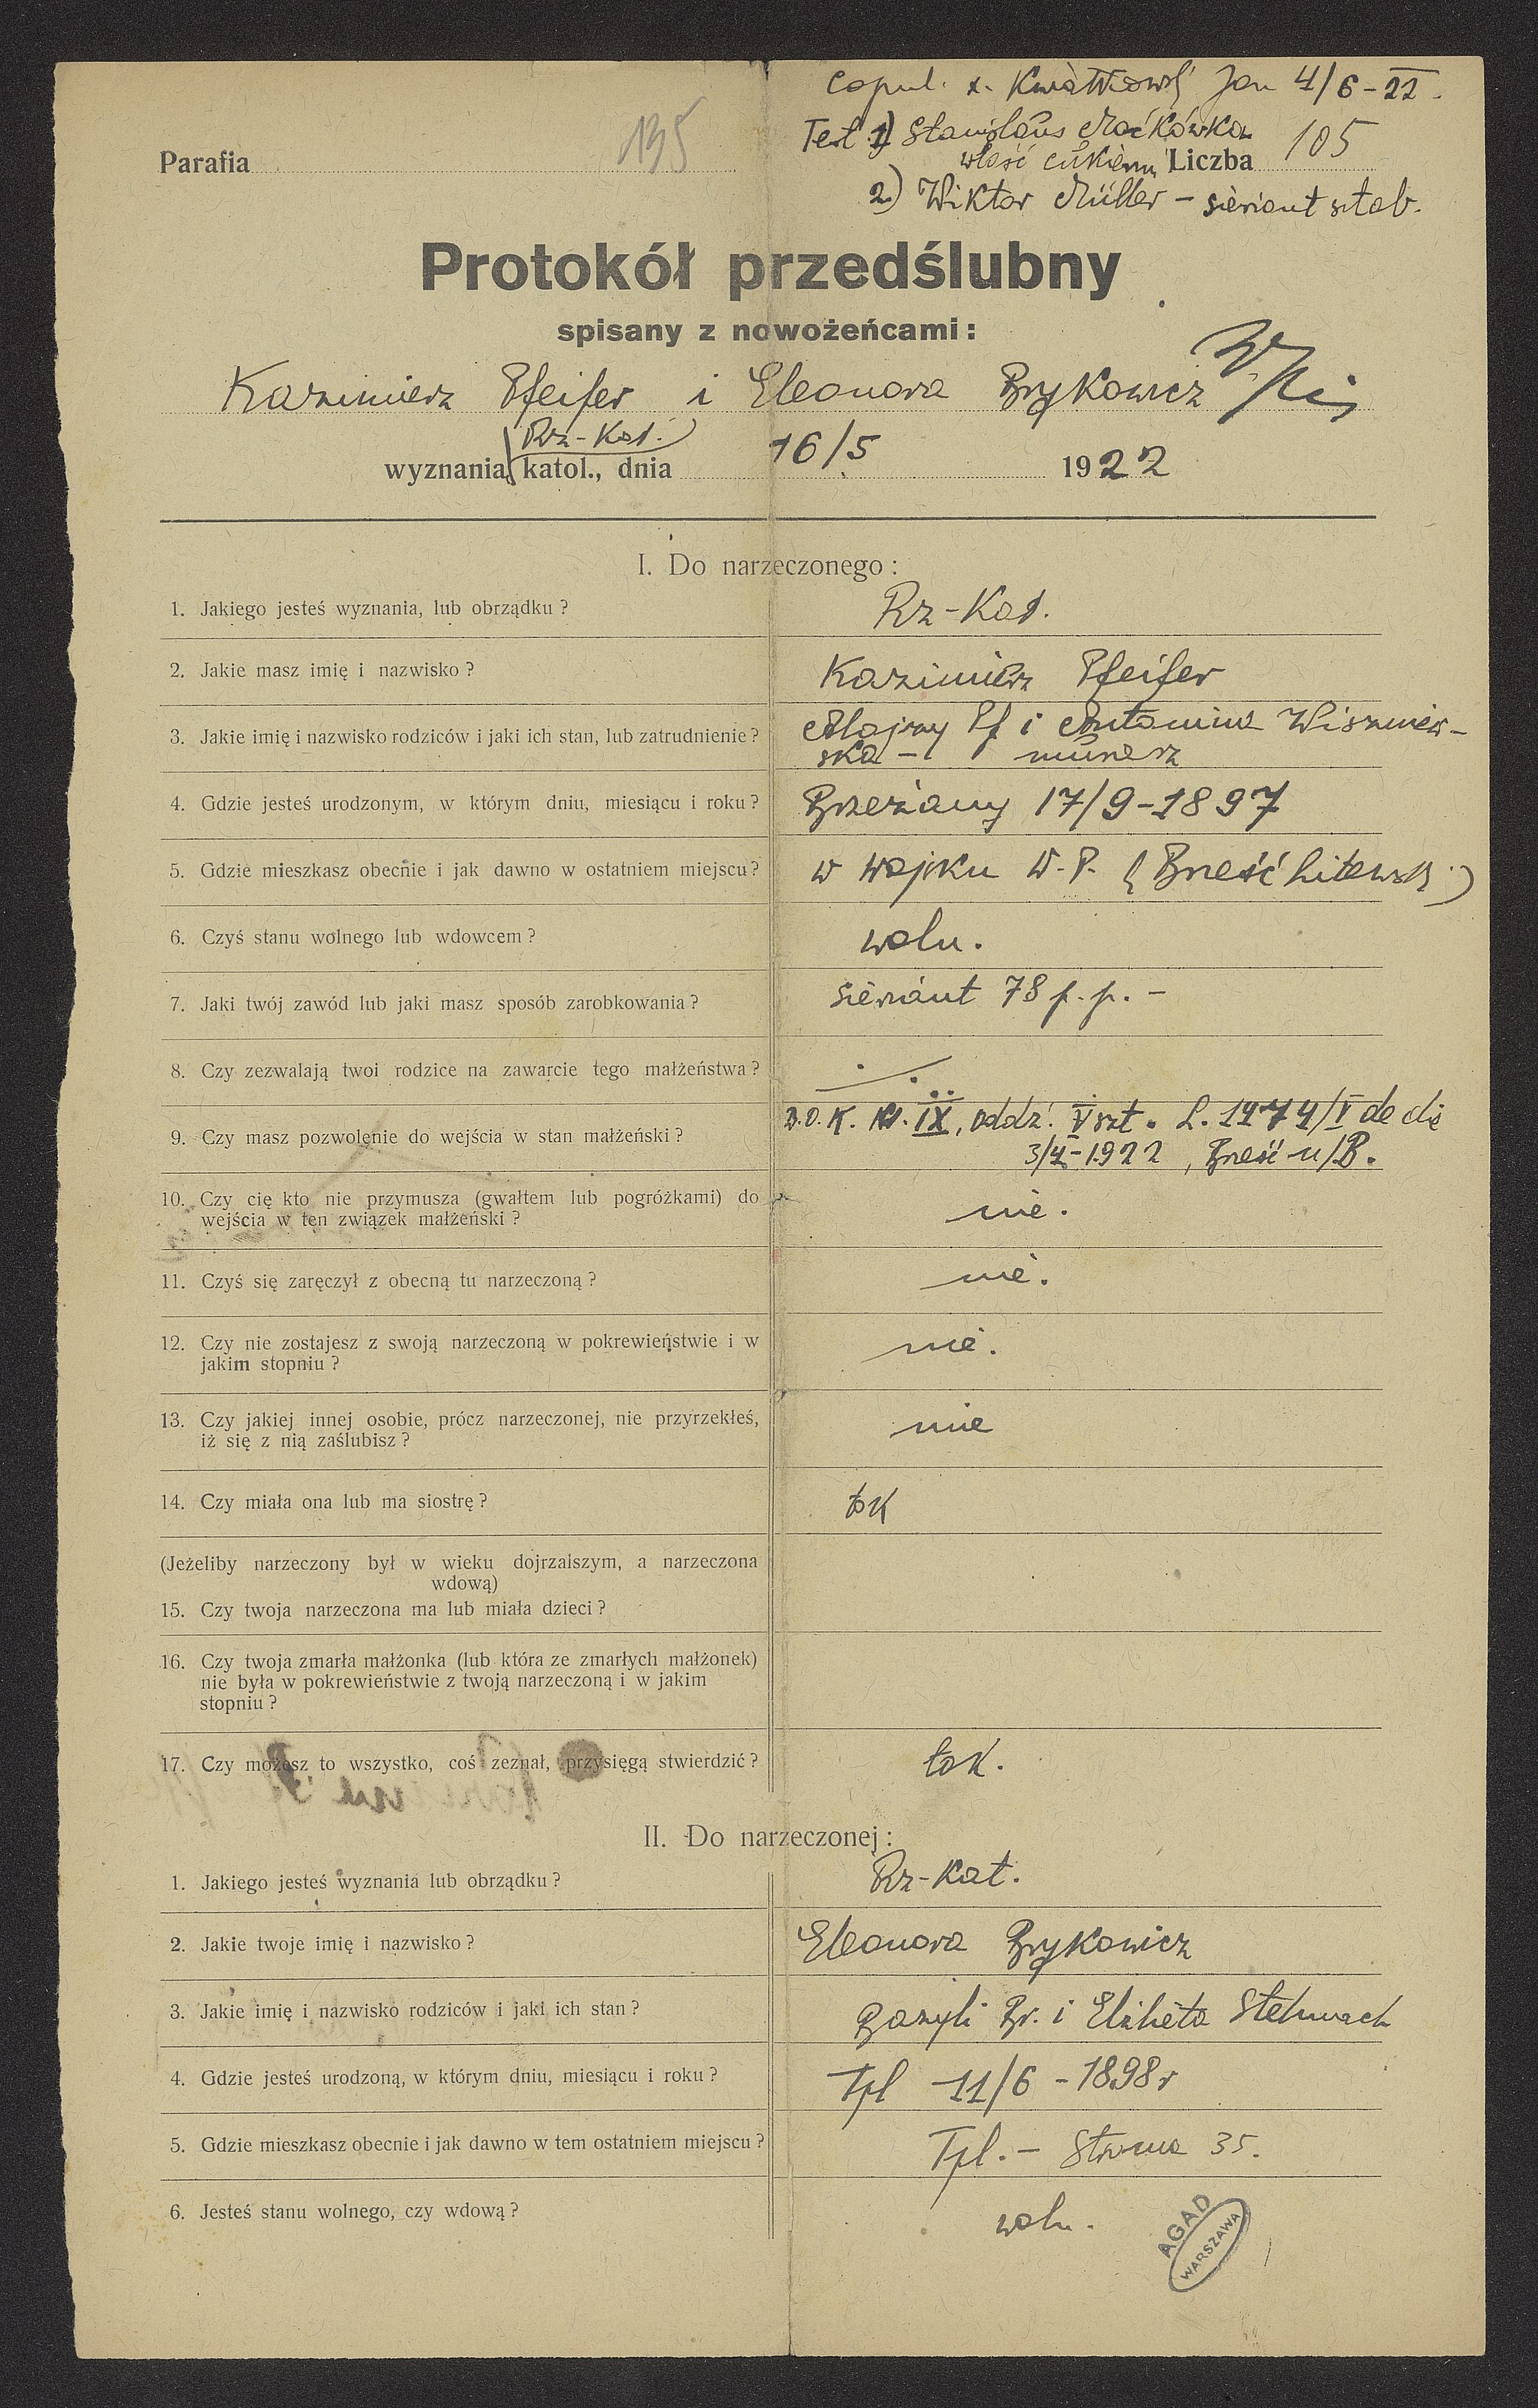 Copul. x. Kwiatkowski Jan 4/6-22.
135
Test 1) Stanisłaus Maćkówka
Parafia
właść cukierni Liczba 105
2) Wiktor Müller - sierżant sztab.
Protokół przedślubny
spisany z nowożeńcami:
Kazimierz Pfeifer i Eleonora Brykowicz
Rz-Kat.
wyznania katol., dnia 16/5 1922
I. Do narzeczonego:
1. Jakiego jesteś wyznania, lub obrządku? Rz-Kat.
2. Jakie masz imię i nazwisko? Kazimierz Pfeifer
3. Jakie imię i nazwisko rodziców i jaki ich stan, lub zatrudnienie? Alojzy Pf i Antonina Wiszniew-
ska - murarz
4. Gdzie jesteś urodzonym, w którym dniu, miesiącu i roku? Brzeżany 17/9-1897
5. Gdzie mieszkasz obecnie i jak dawno w ostatniem miejscu? w wojsku W.P. (Brześć Litewski)
6. Czyś stanu wolnego lub wdowcem? woln.
7. Jaki twój zawód lub jaki masz sposób zarobkowania? sierżant 78 p.p. -
8. Czy zezwalają twoi rodzice na zawarcie tego małżeństwa?
9. Czy masz pozwolenie do wejścia w stan małżeński? D.O.K. N. IX, oddz. V szt. L. 1974/V de die
3/V-1922, Brześć n/B.
10. Czy cię kto nie przymusza (gwałtem lub pogróżkami) do
wejścia w ten związek małżeński? nie.
11. Czyś się zaręczył z obecną tu narzeczoną? nie.
12. Czy nie zostajesz z swoją narzeczoną w pokrewieństwie i w
jakim stopniu? nie.
13. Czy jakiej innej osobie, prócz narzeczonej, nie przyrzekłeś,
iż się z nią zaślubisz? nie
14. Czy miała ona lub ma siostrę? tak
(Jeżeliby narzeczony był w wieku dojrzalszym, a narzeczona
wdową)
15. Czy twoja narzeczona ma lub miała dzieci?
16. Czy twoja zmarła małżonka (lub która ze zmarłych małżonek)
nie była w pokrewieństwie z twoją narzeczoną i w jakim
stopniu?
17. Czy możesz to wszystko, coś zeznał, przysięgą stwierdzić? tak.
II. Do narzeczonej:
1. Jakiego jesteś wyznania lub obrządku? Rz-Kat.
2. Jakie twoje imię i nazwisko? Eleonora Brykowicz
3. Jakie imię i nazwisko rodziców i jaki ich stan? Bazyli Br. i Elżbieta
4. Gdzie jesteś urodzoną, w którym dniu, miesiącu i roku? Tpl 11/6 - 1898 r
5. Gdzie mieszkasz obecnie i jak dawno w tem ostatniem miejscu? Tpl. - Stroma 35.
6. Jesteś stanu wolnego, czy wdową? woln.
AGAD
WARSZAWA